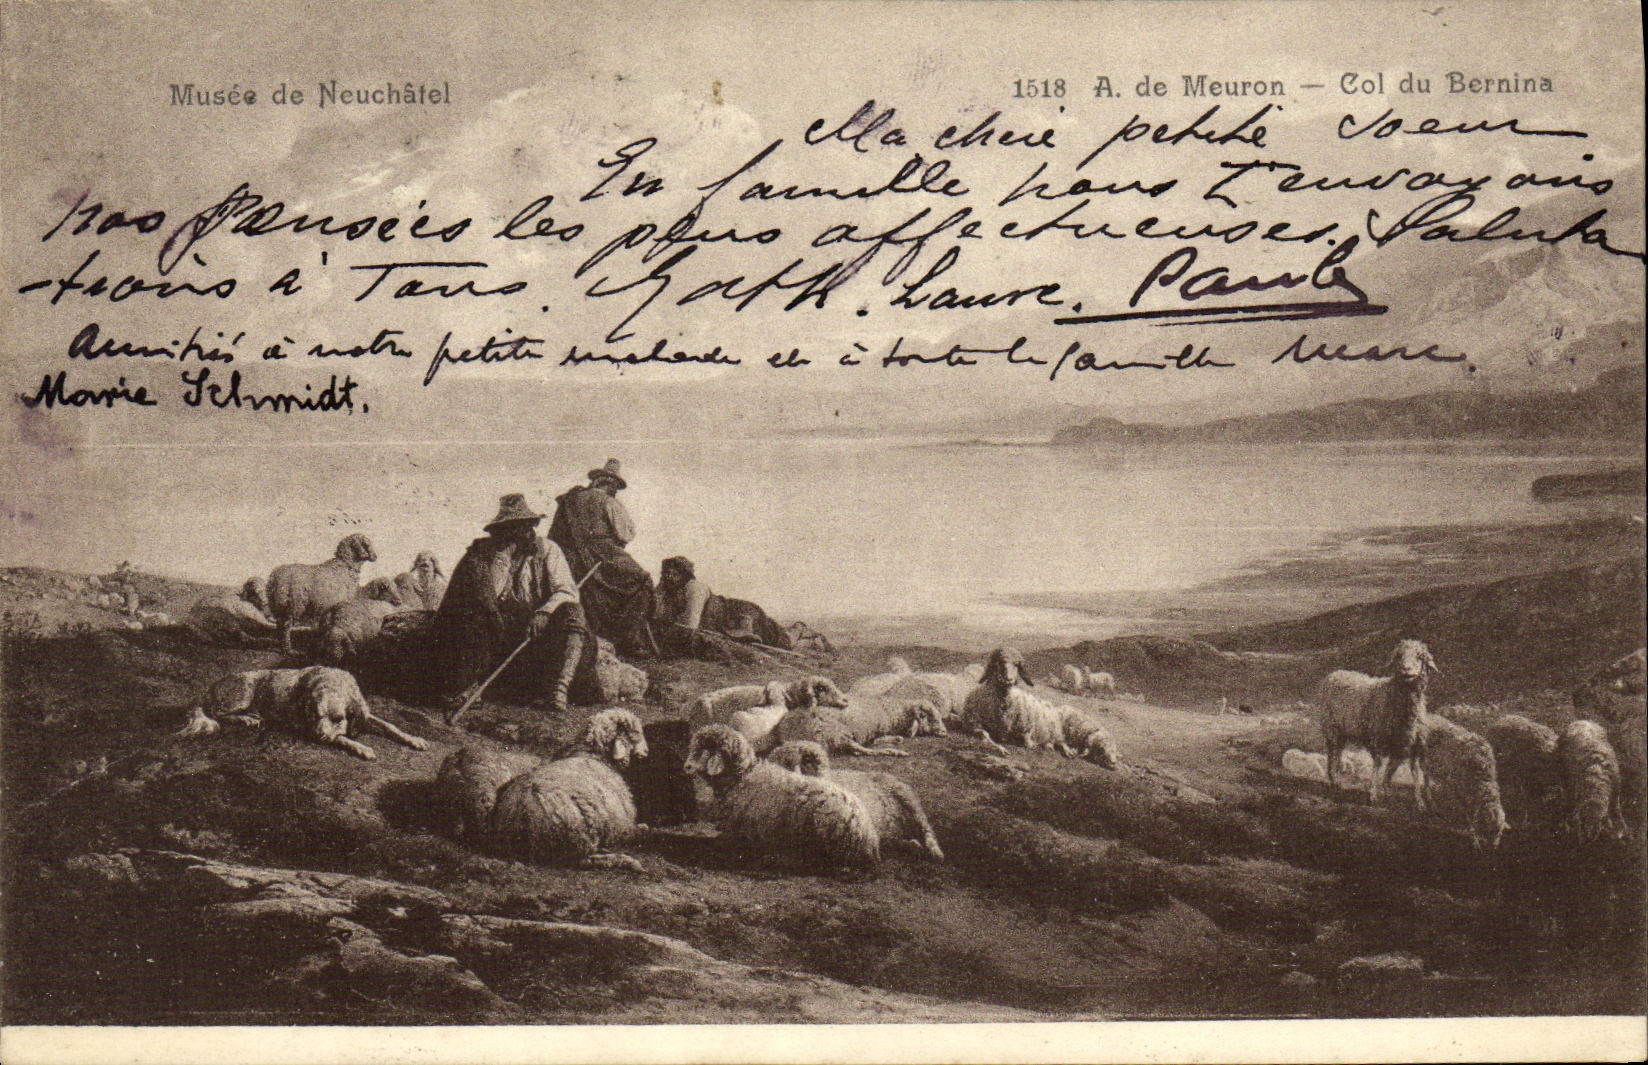 Musée de Neuchâtel
1518 A. de Meuron — Col du Bernina
Ma chère petite soeur
En famille nous t'envoyons
nos pensées les plus affectueuses. Saluta
-tions à Tous. Laure. Paul
Amitiés à notre petite malade et à toute la famille Marc.
Marie Schmidt.